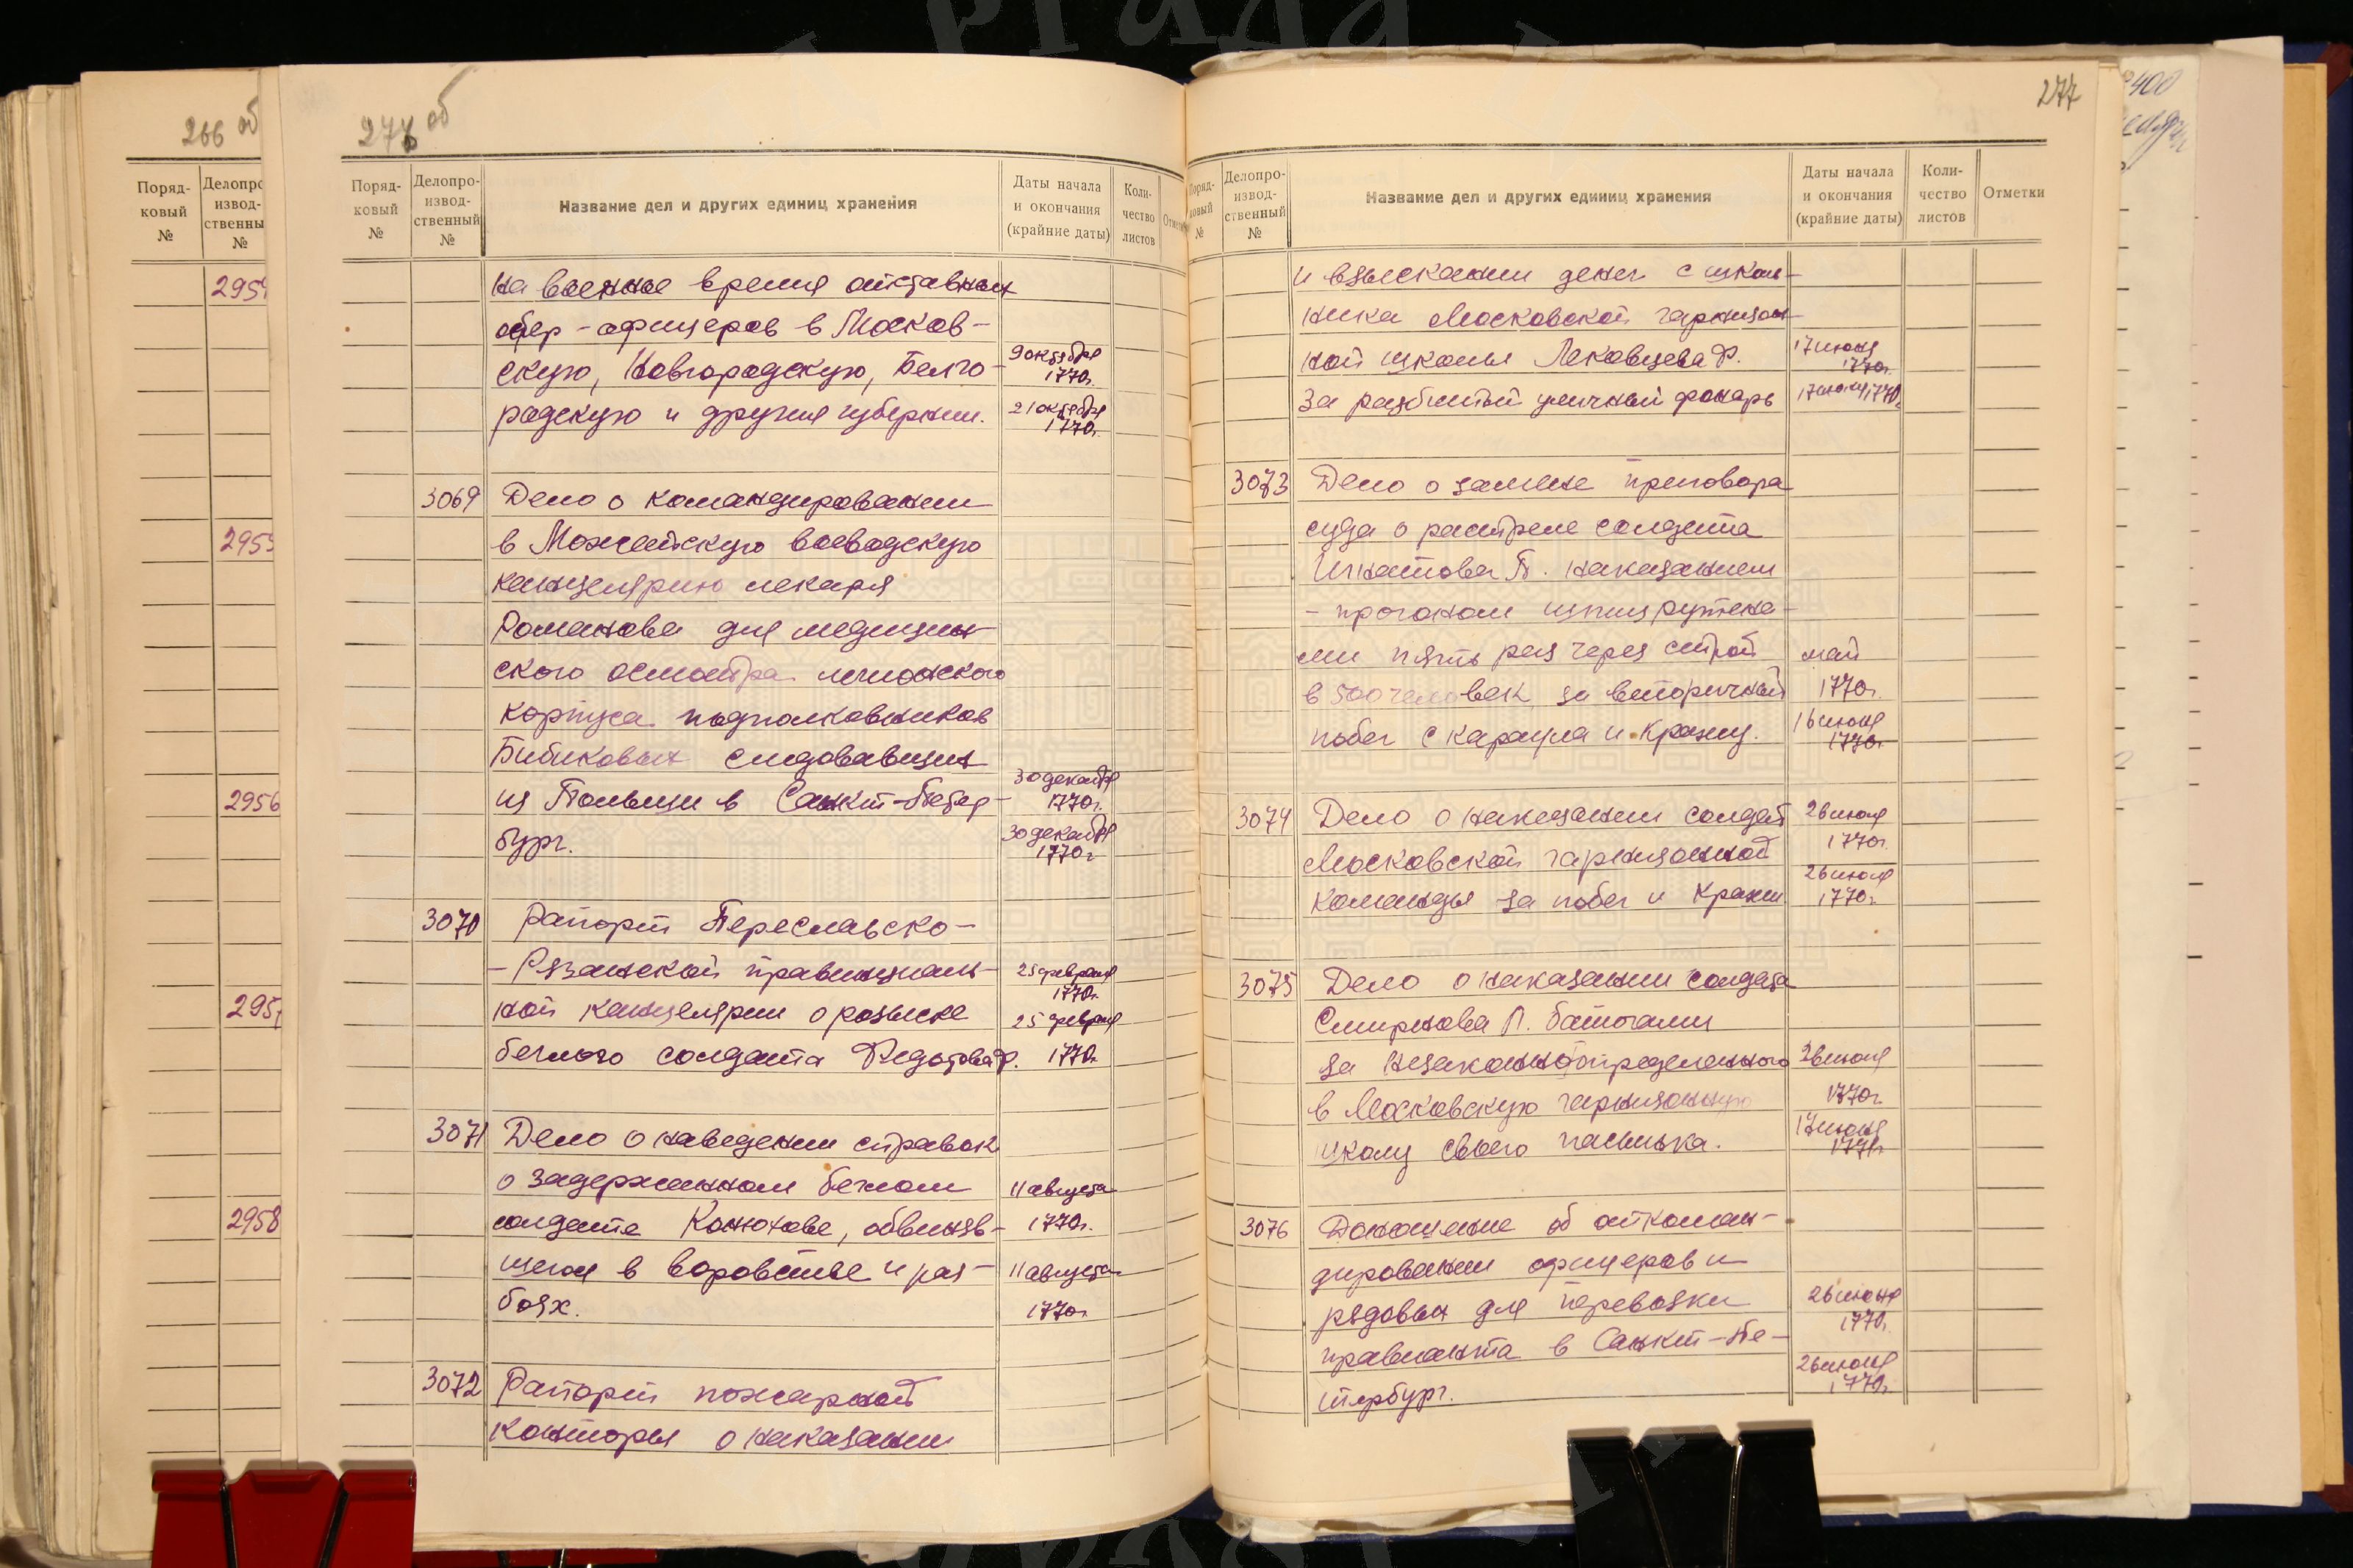 266 об
Поряд-
ковый
№
Делопро
извод-
ственны
№
295
295
2956
295
2958
276 об
Поряд-
ковый
№
Делопро-
извод-
ственный
№
Название дел и других единиц хранения
Даты начала
и окончания
(крайние даты)
Коли-
чество
листов
на военное время отставных
обер-офицеров в Москов-
скую, Новгородскую, Белго-
радскую и другия губернии.
9 октября
1770г.
21 октября
1770г.
3069 Дело о командировании
в Можайскую воеводскую
канцелярию лекаря
Романова для медицин-
ского осмотра легионского
корпуса подполковников
Бибиковых следовавших
из Польши в Санкт-Петер-
бург.
30 декабря
1770г.
30 декабря
1770г
3070 Рапорт Переславско-
-Рязанской правинциаль-
ной канцелярии о розыске
беглого солдата Федотова Ф.
25 февраля
1770г.
25 февраля
1770г.
3071 Дело о наведении справок
о задержанном беглом
солдате Конюхове, обвиняв-
щегося в воровстве и раз-
боях.
11 августа
1770г.
11 августа
1770г.
3072 Рапорт пожарной
конторы о наказании
277
Поряд-
ковый
№
Делопро-
извод-
ственный
№
Название дел и других единиц хранения
Даты начала
и окончания
(крайние даты)
Коли-
чество
листов
Отметки
и взыскании денег с школь-
ника Московской гарнизон-
ной школы Лековцева Ф.
за разбитый уличный фонарь
17 июня
1770г.
17 июля 1770г.
3073 Дело о замене приговора
суда о растреле солдата
Игнатова П. наказанием
- прогоном шпицрутена-
ми пять раз через строй
в 500 человек за вторичный
побег с караула и кражу.
май
1770г.
16 июня
1770г.
3074 Дело о наказании солдат
Московской гарнизонной
команды за побег и кражи
26 июля
1770г.
26 июля
1770г.
3075 Дело о наказании солдата
Смирнова П. батогами
за незаконно определенного
в Московскую гарнизонную
школу своего пасынка.
26 июля
1770г
17 июня
1771г
3076 Доношение об откоман-
дировании офицеров и
рядовых для перевозки
правианта в Санкт-Пе-
тербург.
26 июня
1770г.
26 июля
1770г.
400